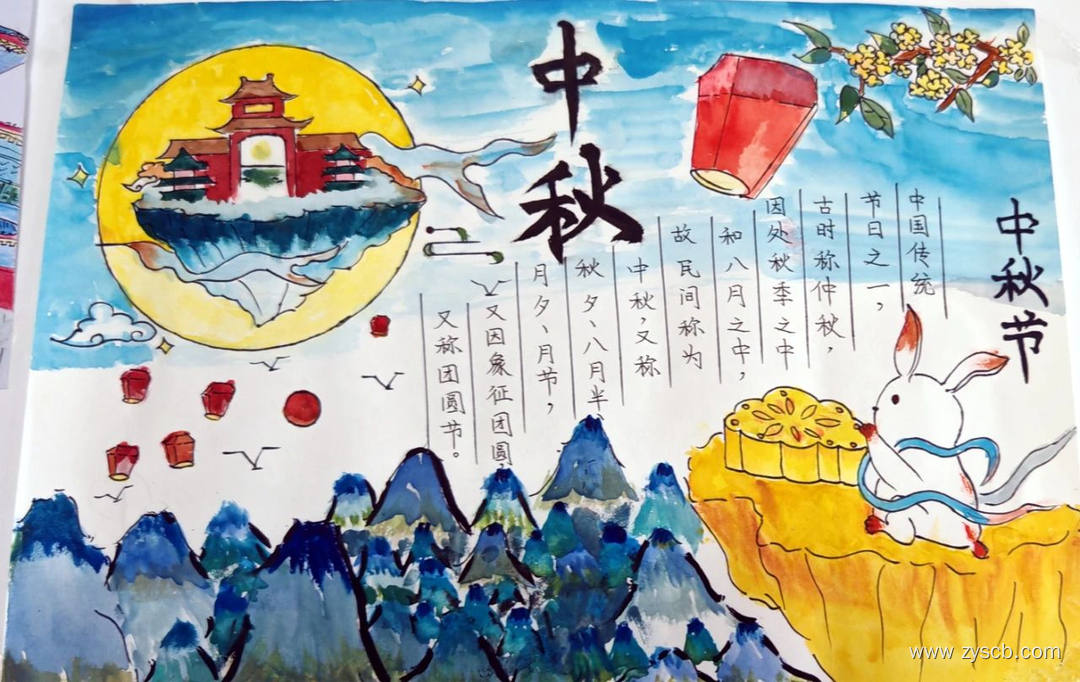 中秋
中秋节
中国传统
节日之一，
古时称仲秋，
因处秋季之中
和八月之中，
故民间称为
中秋，又称
秋夕、八月半
月夕、月节，
又因象征团圆，
又称团圆节。
www.zyscb.com